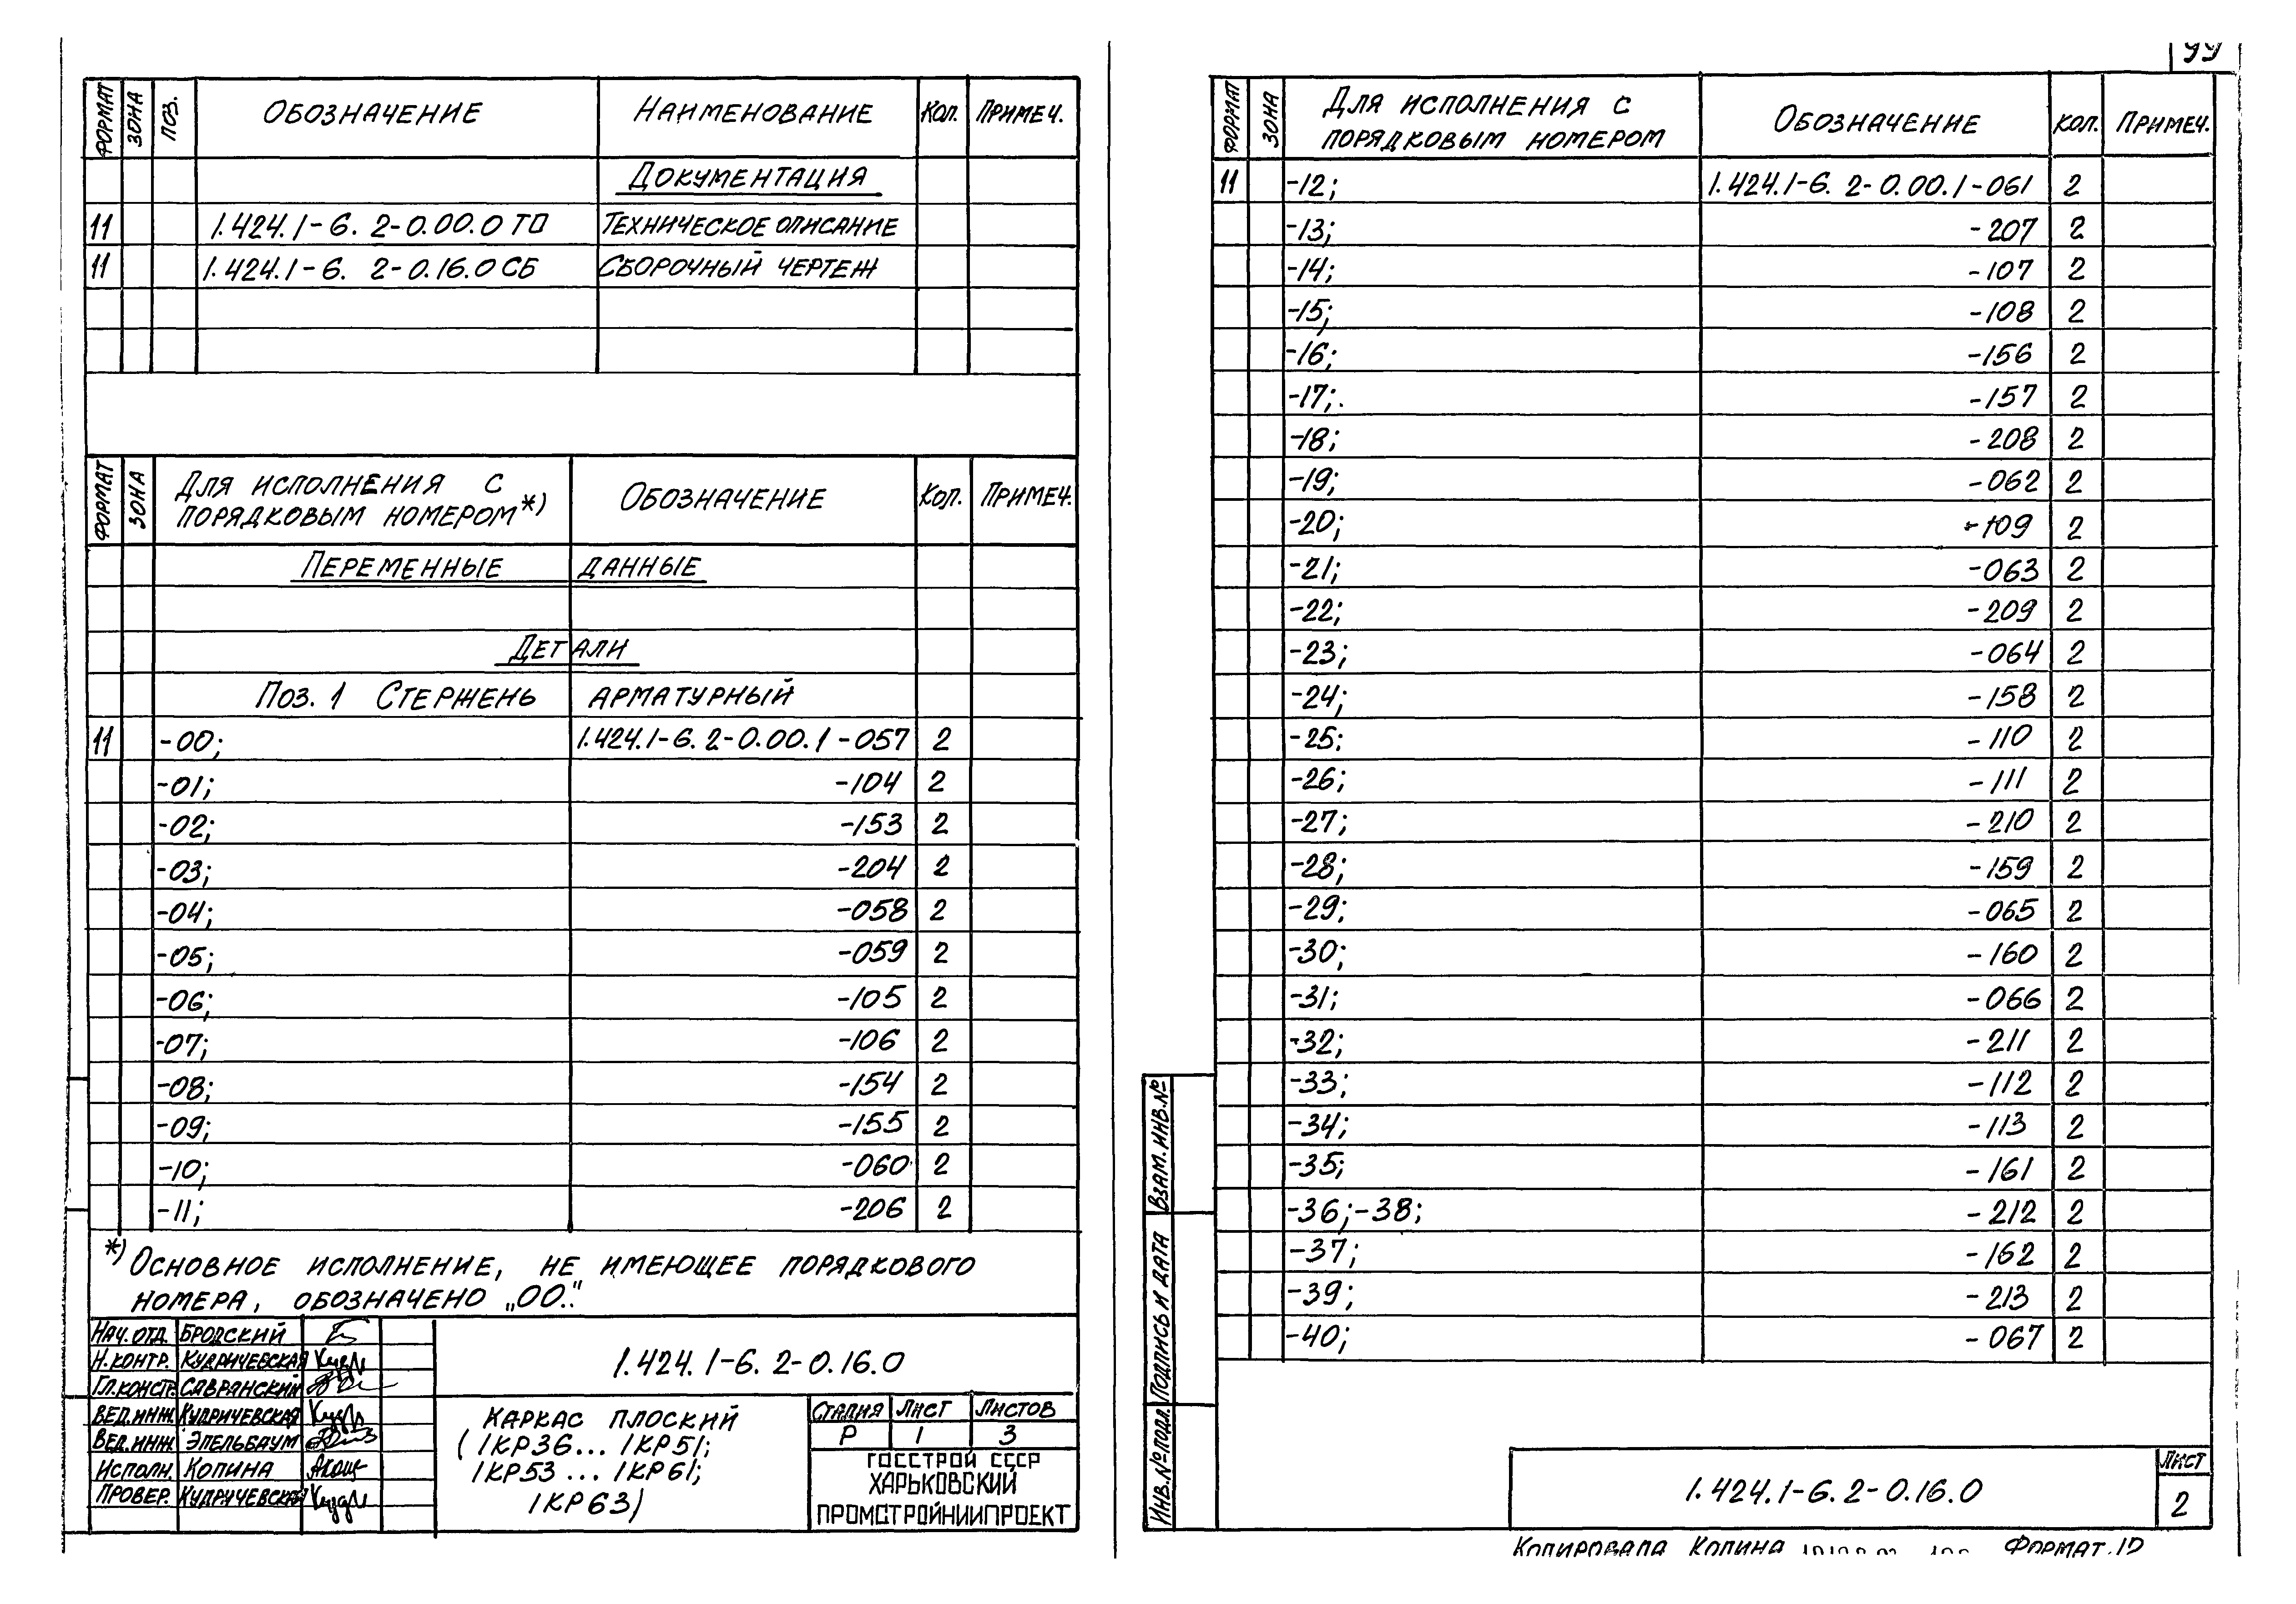 ФОРМАТ ЗОНА ПОЗ. ОБОЗНАЧЕНИЕ НАИМЕНОВАНИЕ КОЛ. ПРИМЕЧ.
ДОКУМЕНТАЦИЯ
11 1.424.1-6. 2-0.00.0 ТО ТЕХНИЧЕСКОЕ ОПИСАНИЕ
11 1.424.1-6. 2-0.16.0 СБ СБОРОЧНЫЙ ЧЕРТЕЖ
ФОРМАТ ЗОНА ДЛЯ ИСПОЛНЕНИЯ С ПОРЯДКОВЫМ НОМЕРОМ*) ОБОЗНАЧЕНИЕ КОЛ. ПРИМЕЧ.
ПЕРЕМЕННЫЕ ДАННЫЕ
ДЕТАЛИ
ПОЗ. 1 СТЕРЖЕНЬ АРМАТУРНЫЙ
11 -00; 1.424.1-6. 2-0.00.1-057 2
-01; -104 2
-02; -153 2
-03; -204 2
-04; -058 2
-05; -059 2
-06; -105 2
-07; -106 2
-08; -154 2
-09; -155 2
-10; -060 2
-11; -206 2
*) ОСНОВНОЕ ИСПОЛНЕНИЕ, НЕ ИМЕЮЩЕЕ ПОРЯДКОВОГО
НОМЕРА, ОБОЗНАЧЕНО „00."
НАЧ. ОТД. БРОДСКИЙ
Н. КОНТР. КУДРИЧЕВСКАЯ
ГЛ. КОНСТР. САВРАНСКИЙ
ВЕД. ИНЖ. КУДРИЧЕВСКАЯ
ВЕД. ИНЖ. ЭПЕЛЬБАУМ
ИСПОЛН. КОПИНА
ПРОВЕР. КУДРИЧЕВСКАЯ
1.424.1-6. 2-0.16.0
КАРКАС ПЛОСКИЙ
(1КР36... 1КР51;
1КР53... 1КР61;
1КР63)
СТАДИЯ ЛИСТ ЛИСТОВ
Р 1 3
ГОССТРОЙ СССР
ХАРЬКОВСКИЙ
ПРОМСТРОЙНИИПРОЕКТ
99
ФОРМАТ ЗОНА ДЛЯ ИСПОЛНЕНИЯ С ПОРЯДКОВЫМ НОМЕРОМ ОБОЗНАЧЕНИЕ КОЛ. ПРИМЕЧ.
11 -12; 1.424.1-6. 2-0.00.1-061 2
-13; -207 2
-14; -107 2
-15; -108 2
-16; -156 2
-17; -157 2
-18; -208 2
-19; -062 2
-20; -109 2
-21; -063 2
-22; -209 2
-23; -064 2
-24; -158 2
-25; -110 2
-26; -111 2
-27; -210 2
-28; -159 2
-29; -065 2
-30; -160 2
-31; -066 2
-32; -211 2
-33; -112 2
-34; -113 2
-35; -161 2
-36; -38; -212 2
-37; -162 2
-39; -213 2
-40; -067 2
ВЗАМ. ИНВ. №
ПОДПИСЬ И ДАТА
ИНВ. № ПОДЛ.
1.424.1-6. 2-0.16.0
ЛИСТ
2
КОПИРОВАЛА КОПИНА ФОРМАТ